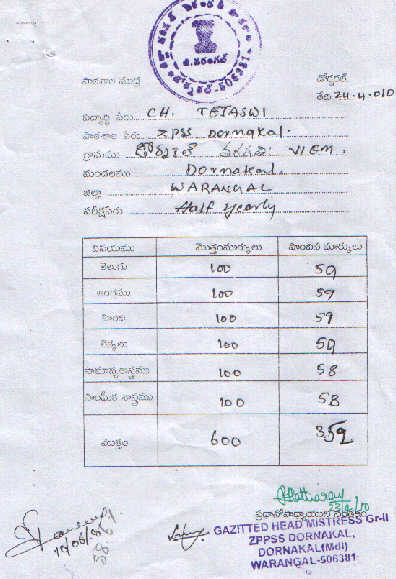 పాఠశాల ముద్ర డోర్నకల్
తేది 24-4-010
విద్యార్థి పేరు CH. TETASWI
పాఠశాల పేరు ZPSS Dornakal.
గ్రామము డోర్నకల్ తరగతి VI EM.
మండలము Dornakal.
జిల్లా WARANGAL
పరీక్షపేరు Half yearly
విషయము మొత్తంమార్కులు పొందిన మార్కులు
తెలుగు 100 59
ఆంగ్లము 100 59
హింది 100 59
లెక్కలు 100 59
సామాన్యశాస్త్రము 100 58
సాంఘీక శాస్త్రము 100 58
మొత్తం 600 352
ప్రధానోపాధ్యాయుల సంతకం
GAZITTED HEAD MISTRESS Gr-II
ZPPSS DORNAKAL,
DORNAKAL(Mdl)
WARANGAL-506381